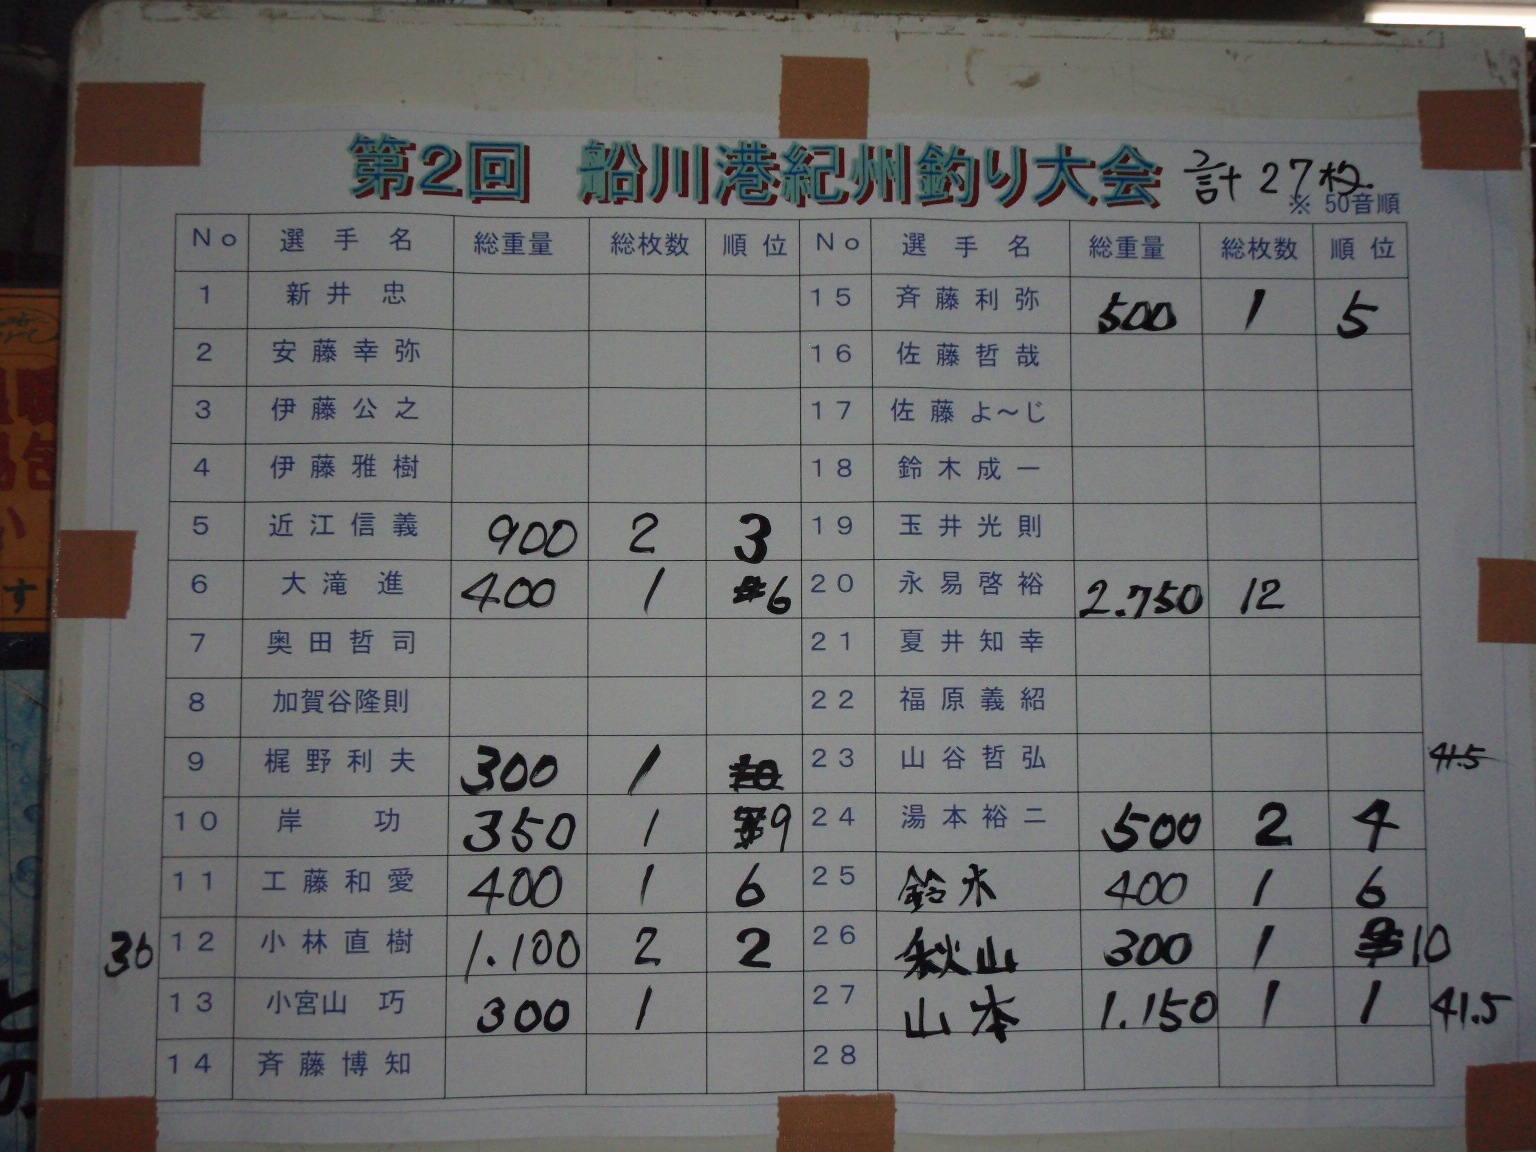 第2回 船川港紀州釣り大会 計27枚
※ 50音順
No 選手名 総重量 総枚数 順位 No 選手名 総重量 総枚数 順位
1 新井 忠 15 斉藤利弥 500 1 5
2 安藤幸弥 16 佐藤哲哉
3 伊藤公之 17 佐藤よ～じ
4 伊藤雅樹 18 鈴木成一
5 近江信義 900 2 3 19 玉井光則
6 大滝 進 400 1 6 20 永易啓裕 2.750 12
7 奥田哲司 21 夏井知幸
8 加賀谷隆則 22 福原義紹
9 梶野利夫 300 1 23 山谷哲弘 41.5
10 岸 功 350 1 9 24 湯本裕二 500 2 4
11 工藤和愛 400 1 6 25 鈴木 400 1 6
36 12 小林直樹 1.100 2 2 26 秋山 300 1 10
13 小宮山 巧 300 1 27 山本 1.150 1 1 41.5
14 斉藤博知 28